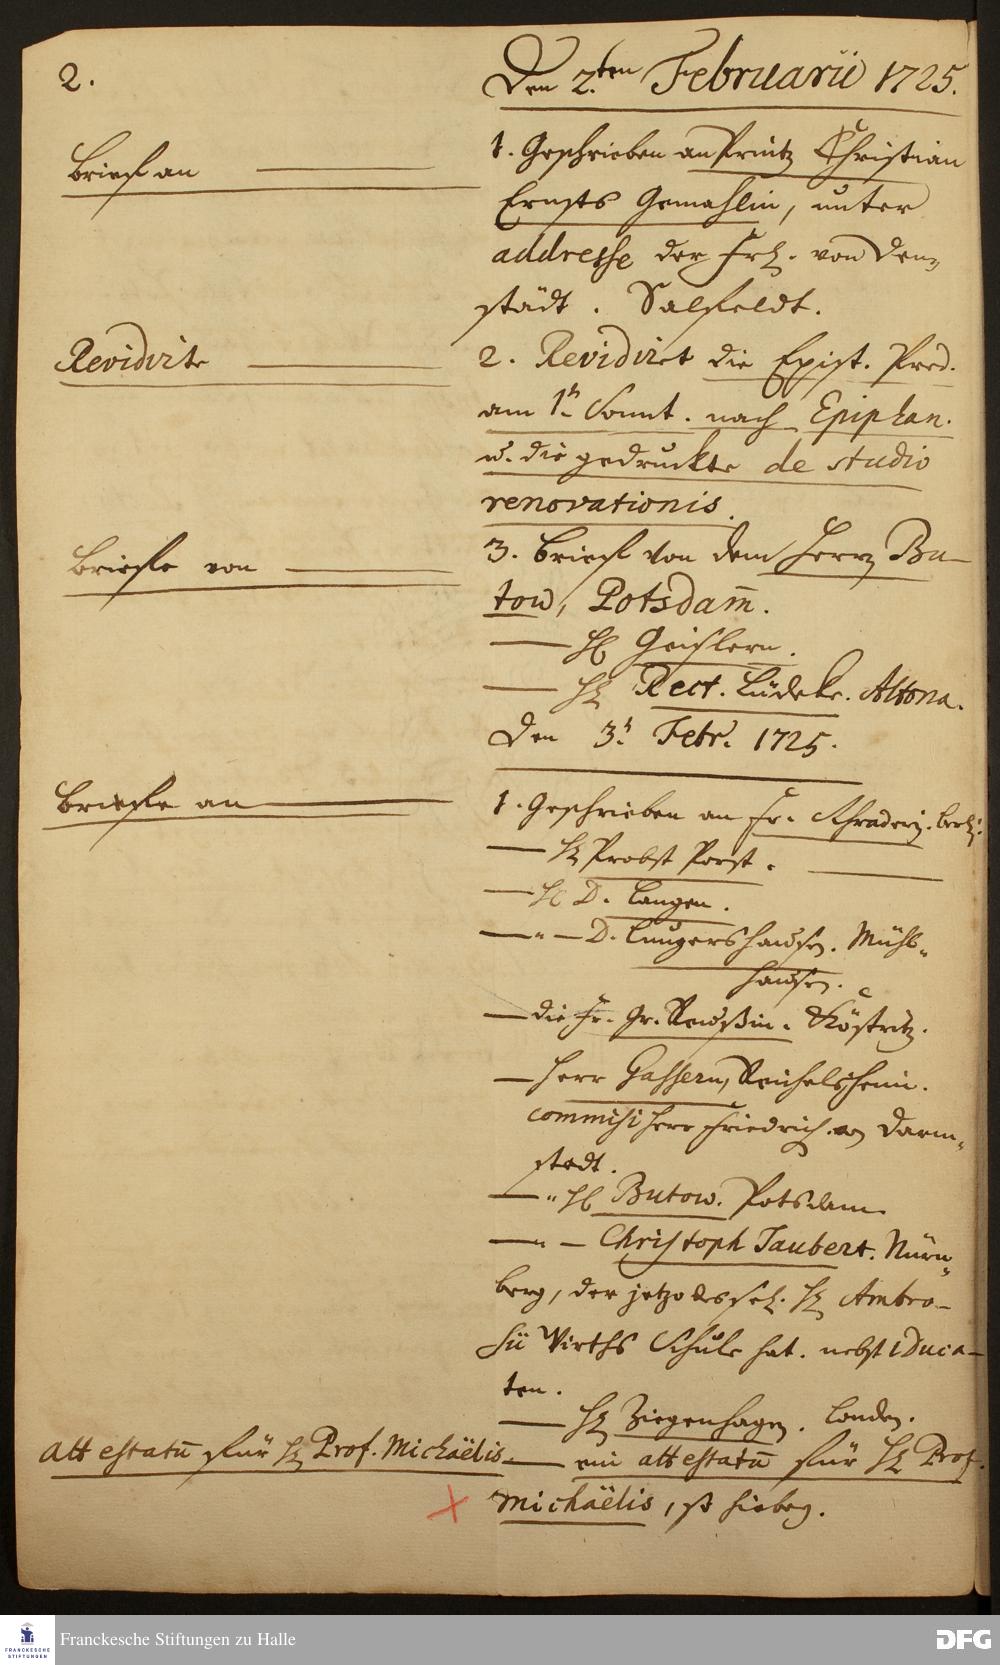 2.
Den 2.ten Februarii 1725.
Brief an
1. Geschrieben an Printz Christian
Ernsts Gemahlin, unter
addresse der Frl. von Denn-
städt. Salfeldt.
Revidirte
2. Revidiret die Epist. Pred.
am 1n Sonnt. nach Epiphan.
u. die gedruckte de studio
renovationis.
Briefe von
3. Brief von dem Herrn Bu-
tow, Potsdam̄.
H. Geislern.
H. Rect. Lüdeke. Altona.
Den 3n Febr. 1725.
Briefe an
1. Geschrieben an Fr. Schraderin. Berl:
H. Probst Porst.
H. D. Langen.
D. Lungershausen. Mühl-
hausen.
die Fr. Gr. Reußin. Köstritz.
Herr Gassern, Reichelsheim.
commisi Herr Friedrich Darm-
stadt.
H. Butow. Potsdam.
Christoph Taubert. Nürn-
berg, der jetzo des sel. H. Ambro-
sii Wirths Schule hat. nebst 1 Duca-
ten.
H. Ziegenhagen. Londen.
attestatū für H. Prof. Michaëlis
ein attestatū für H. Prof.
Michaëlis,
Franckesche Stiftungen zu Halle
FRANCKESCHE
STIFTUNGEN
DFG